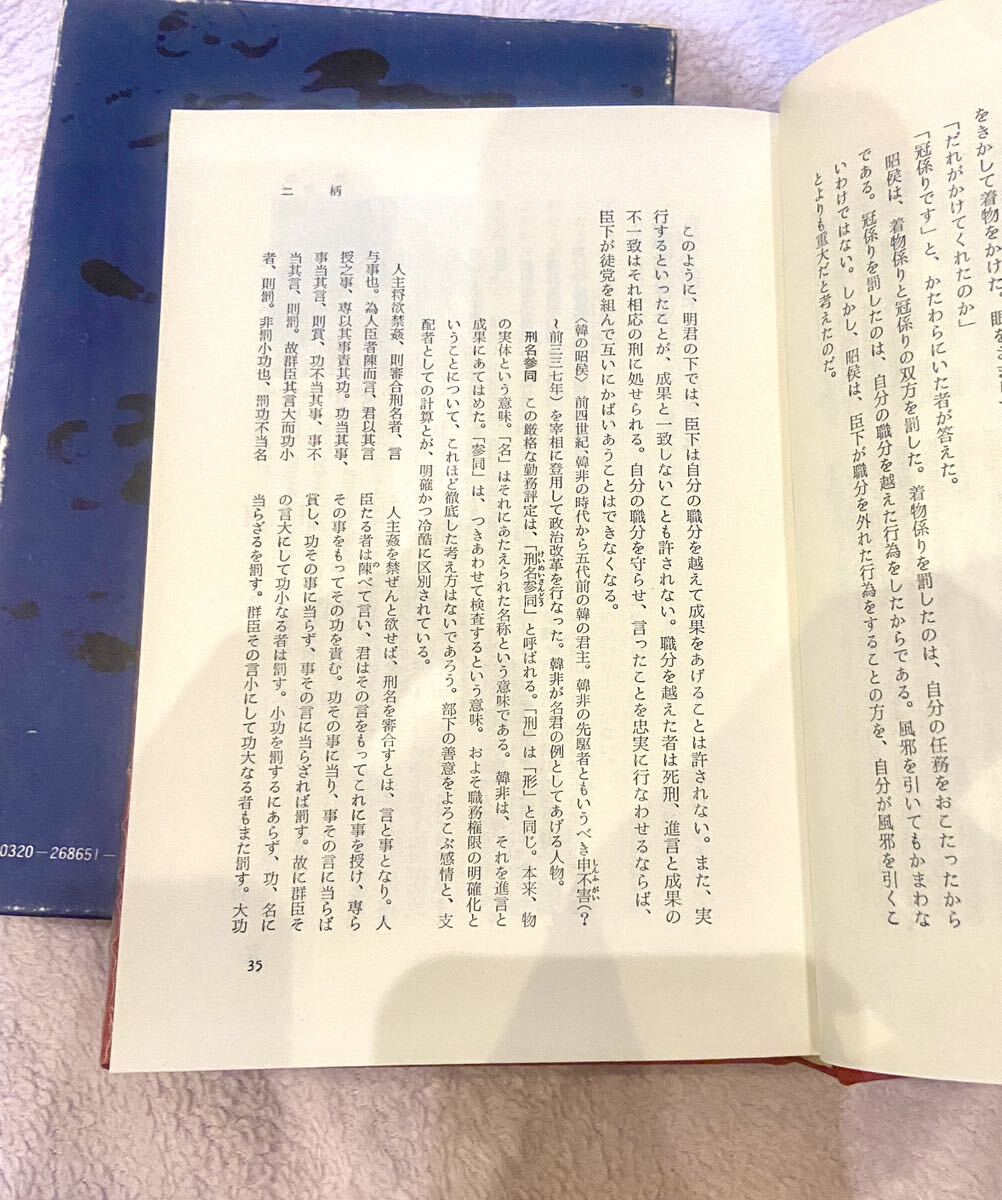 をきかして着物をかけた。
「だれがかけてくれたのか」
「冠係りです」と、かたわらにいた者が答えた。
昭侯は、着物係りと冠係りの双方を罰した。着物係りを罰したのは、自分の任務をおこたったから
である。冠係りを罰したのは、自分の職分を越えた行為をしたからである。風邪を引いてもかまわな
いわけではない。しかし、昭侯は、臣下が職分を外れた行為をすることの方を、自分が風邪を引くこ
とよりも重大だと考えたのだ。
このように、明君の下では、臣下は自分の職分を越えて成果をあげることは許されない。また、実
行するといったことが、成果と一致しないことも許されない。職分を越えた者は死刑、進言と成果の
不一致はそれ相応の刑に処せられる。自分の職分を守らせ、言ったことを忠実に行なわせるならば、
臣下が徒党を組んで互いにかばいあうことはできなくなる。
〈韓の昭侯〉 前四世紀、韓非の時代から五代前の韓の君主。韓非の先駆者ともいうべき申不害(?
しんふがい
〜前三三七年)を宰相に登用して政治改革を行なった。韓非が名君の例としてあげる人物。
刑名参同 この厳格な勤務評定は、「刑名参同」と呼ばれる。「刑」は「形」と同じ。本来、物
けいめいさんどう
の実体という意味。「名」はそれにあたえられた名称という意味である。韓非は、それを進言と
成果にあてはめた。「参同」は、つきあわせて検査するという意味。およそ職務権限の明確化と
いうことについて、これほど徹底した考え方はないであろう。部下の善意をよろこぶ感情と、支
配者としての計算とが、明確かつ冷酷に区別されている。
人主将欲禁姦、則審合刑名者、言
与事也。為人臣者陳而言、君以其言
授之事、専以其事責其功。功当其事、
事当其言、則賞、功不当其事、事不
当其言、則罰。故群臣其言大而功小
者、則罰。非罰小功也、罰功不当名
人主姦を禁ぜんと欲せば、刑名を審合すとは、言と事となり。人
臣たる者は陳べて言い、君はその言をもってこれに事を授け、専ら
の
その事をもってその功を責む。功その事に当り、事その言に当らば
賞し、功その事に当らず、事その言に当らざれば罰す。故に群臣そ
の言大にして功小なる者は罰す。小功を罰するにあらず、功、名に
当らざるを罰す。群臣その言小にして功大なる者もまた罰す。大功
二柄
35
0320-268651-